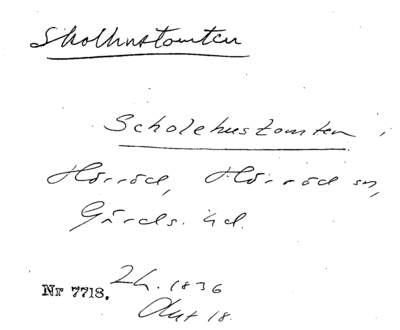 Skolhustomten
Scholehustomten,
Hörröd, Hörröd sn,
Gärds hd.
Nr 7718. Lh. 1836
Akt 18.